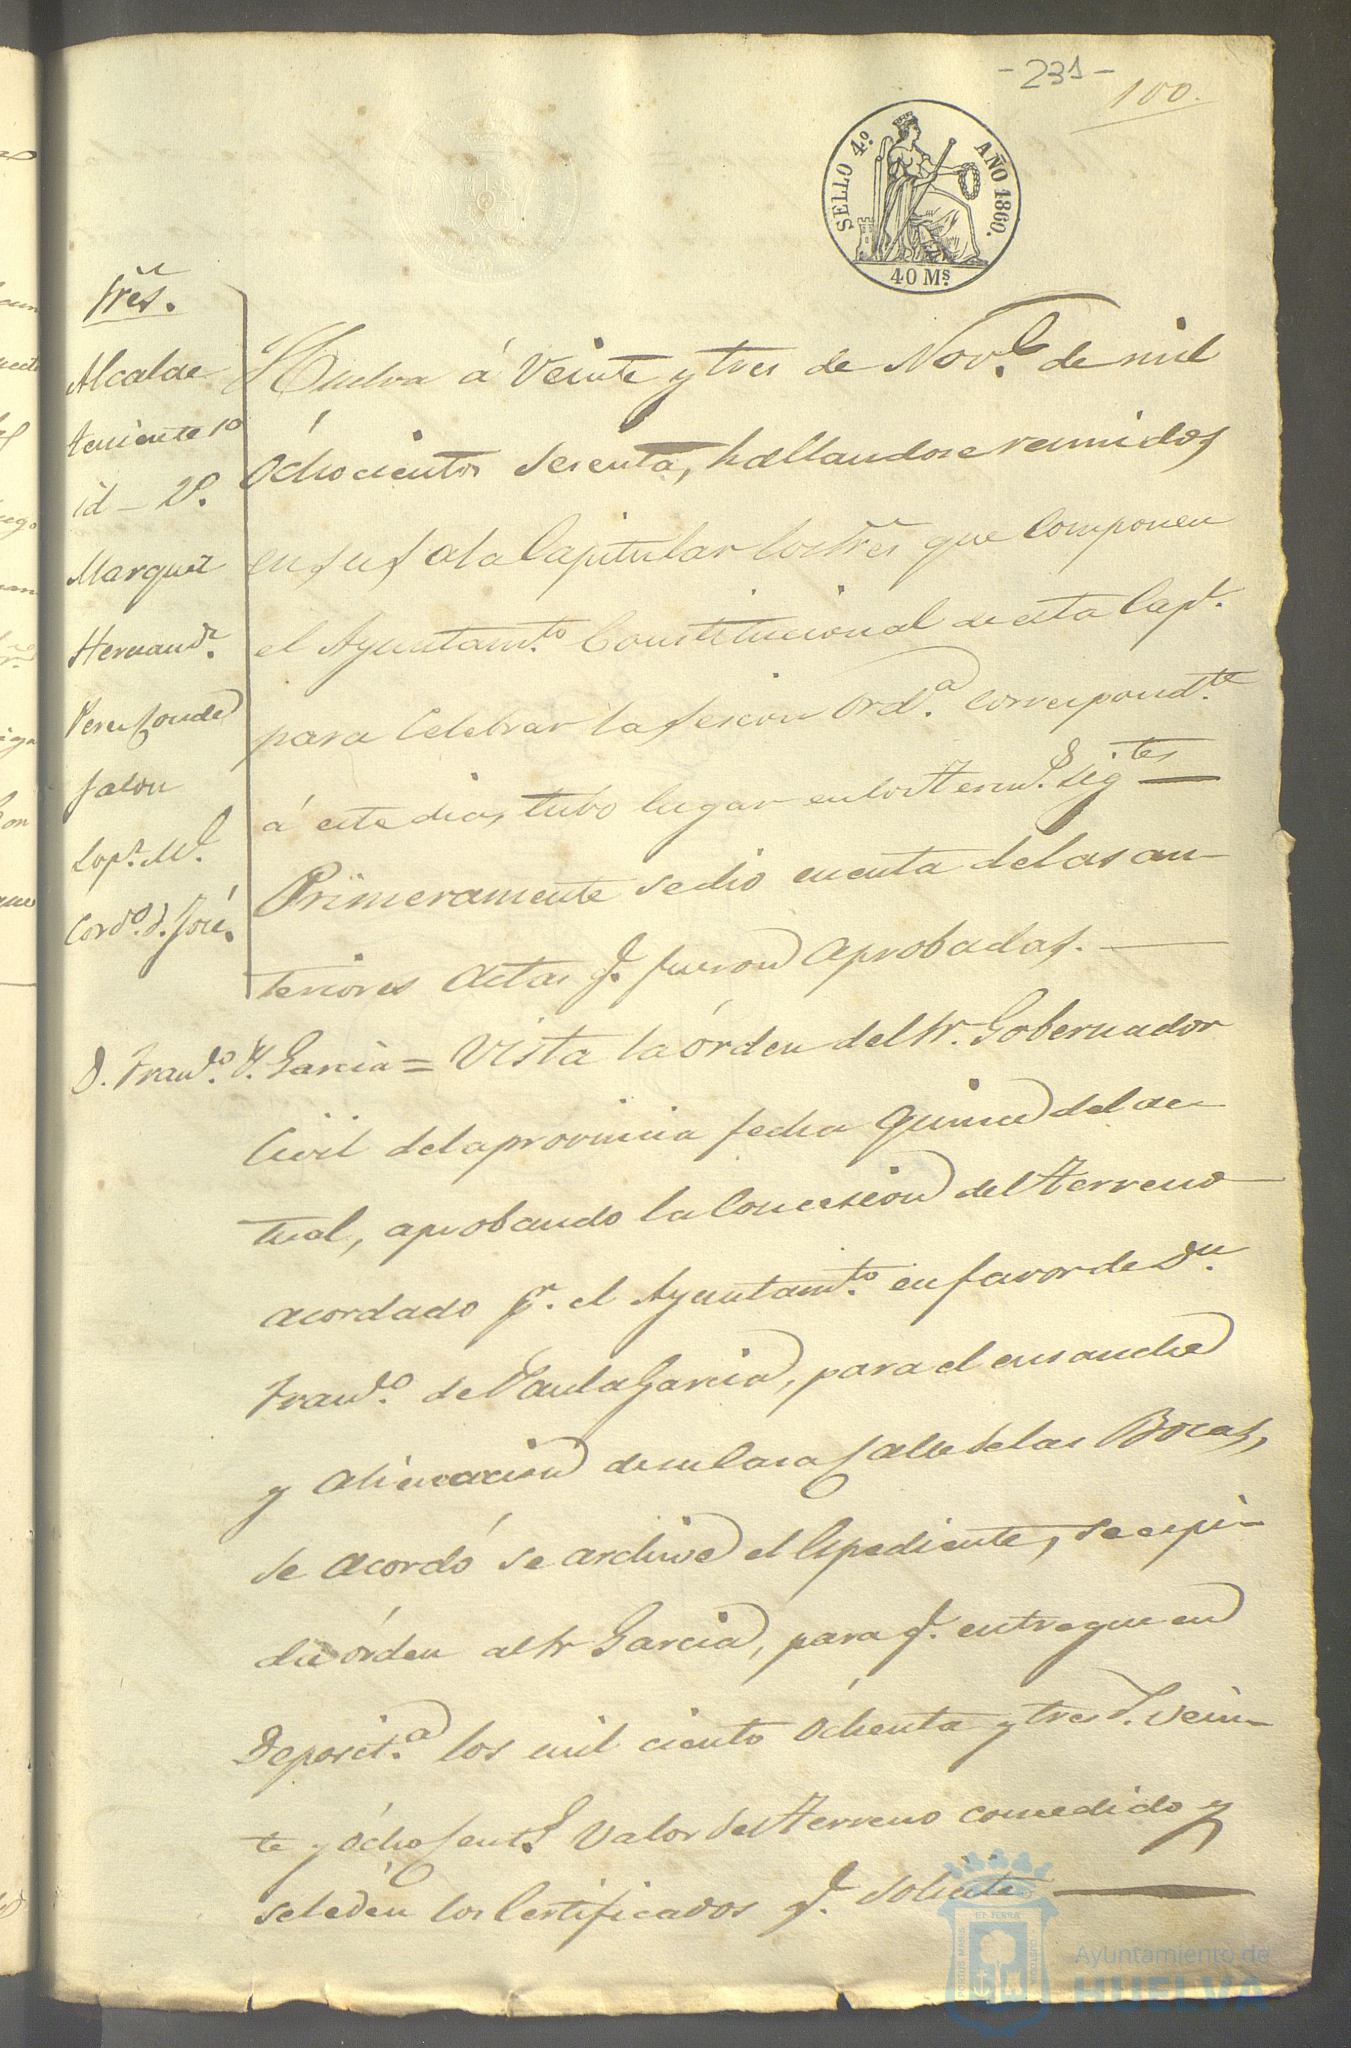 -231-
100.
SELLO 4.º AÑO 1860.
40 Ms.
Sres.
Alcalde
teniente 1º
id - 2º.
Marquez
Hernandz.
Perez Conde
Jalon
Lopz. Ml.
Cordo. d. José.
Huelva á Veinte y tres de Nove. de mil
Óchocientos Sesenta, hallandose reunidos
en su Sala Capitular los Sres que Componen
el Ayuntamto. Constitucional de esta Capl.
para Celebrar la Sesion Orda. correspondte
á este dia, tubo lugar en los term.s Sigtes
Primeramente se dio cuenta de las an-
teriores Actas q. fueron Aprobadas.
D. Franco. P. Garcia = Vista la órden del Sr. Gobernador
Civil de la provincia fecha quince del ac-
tual, aprobando la Concesion del terreno
acordado pr. el Ayuntamto. en favor de Dn.
Franco. de Paula Garcia, para el ensanche
y Alineacion de su Casa Calle de las Bocas,
se Acordó se archive el Espediente, se espi-
da órden al Sr Garcia, para q. entregue en
Deposita. los mil ciento Óchenta y tres r. vein-
te y Ócho Cents. Valor del terreno concedido y
se le dén los Certificados q. Solicite
PORTUS MARIS ET TERRÆ CUSTODIA
Ayuntamiento de
HUELVA